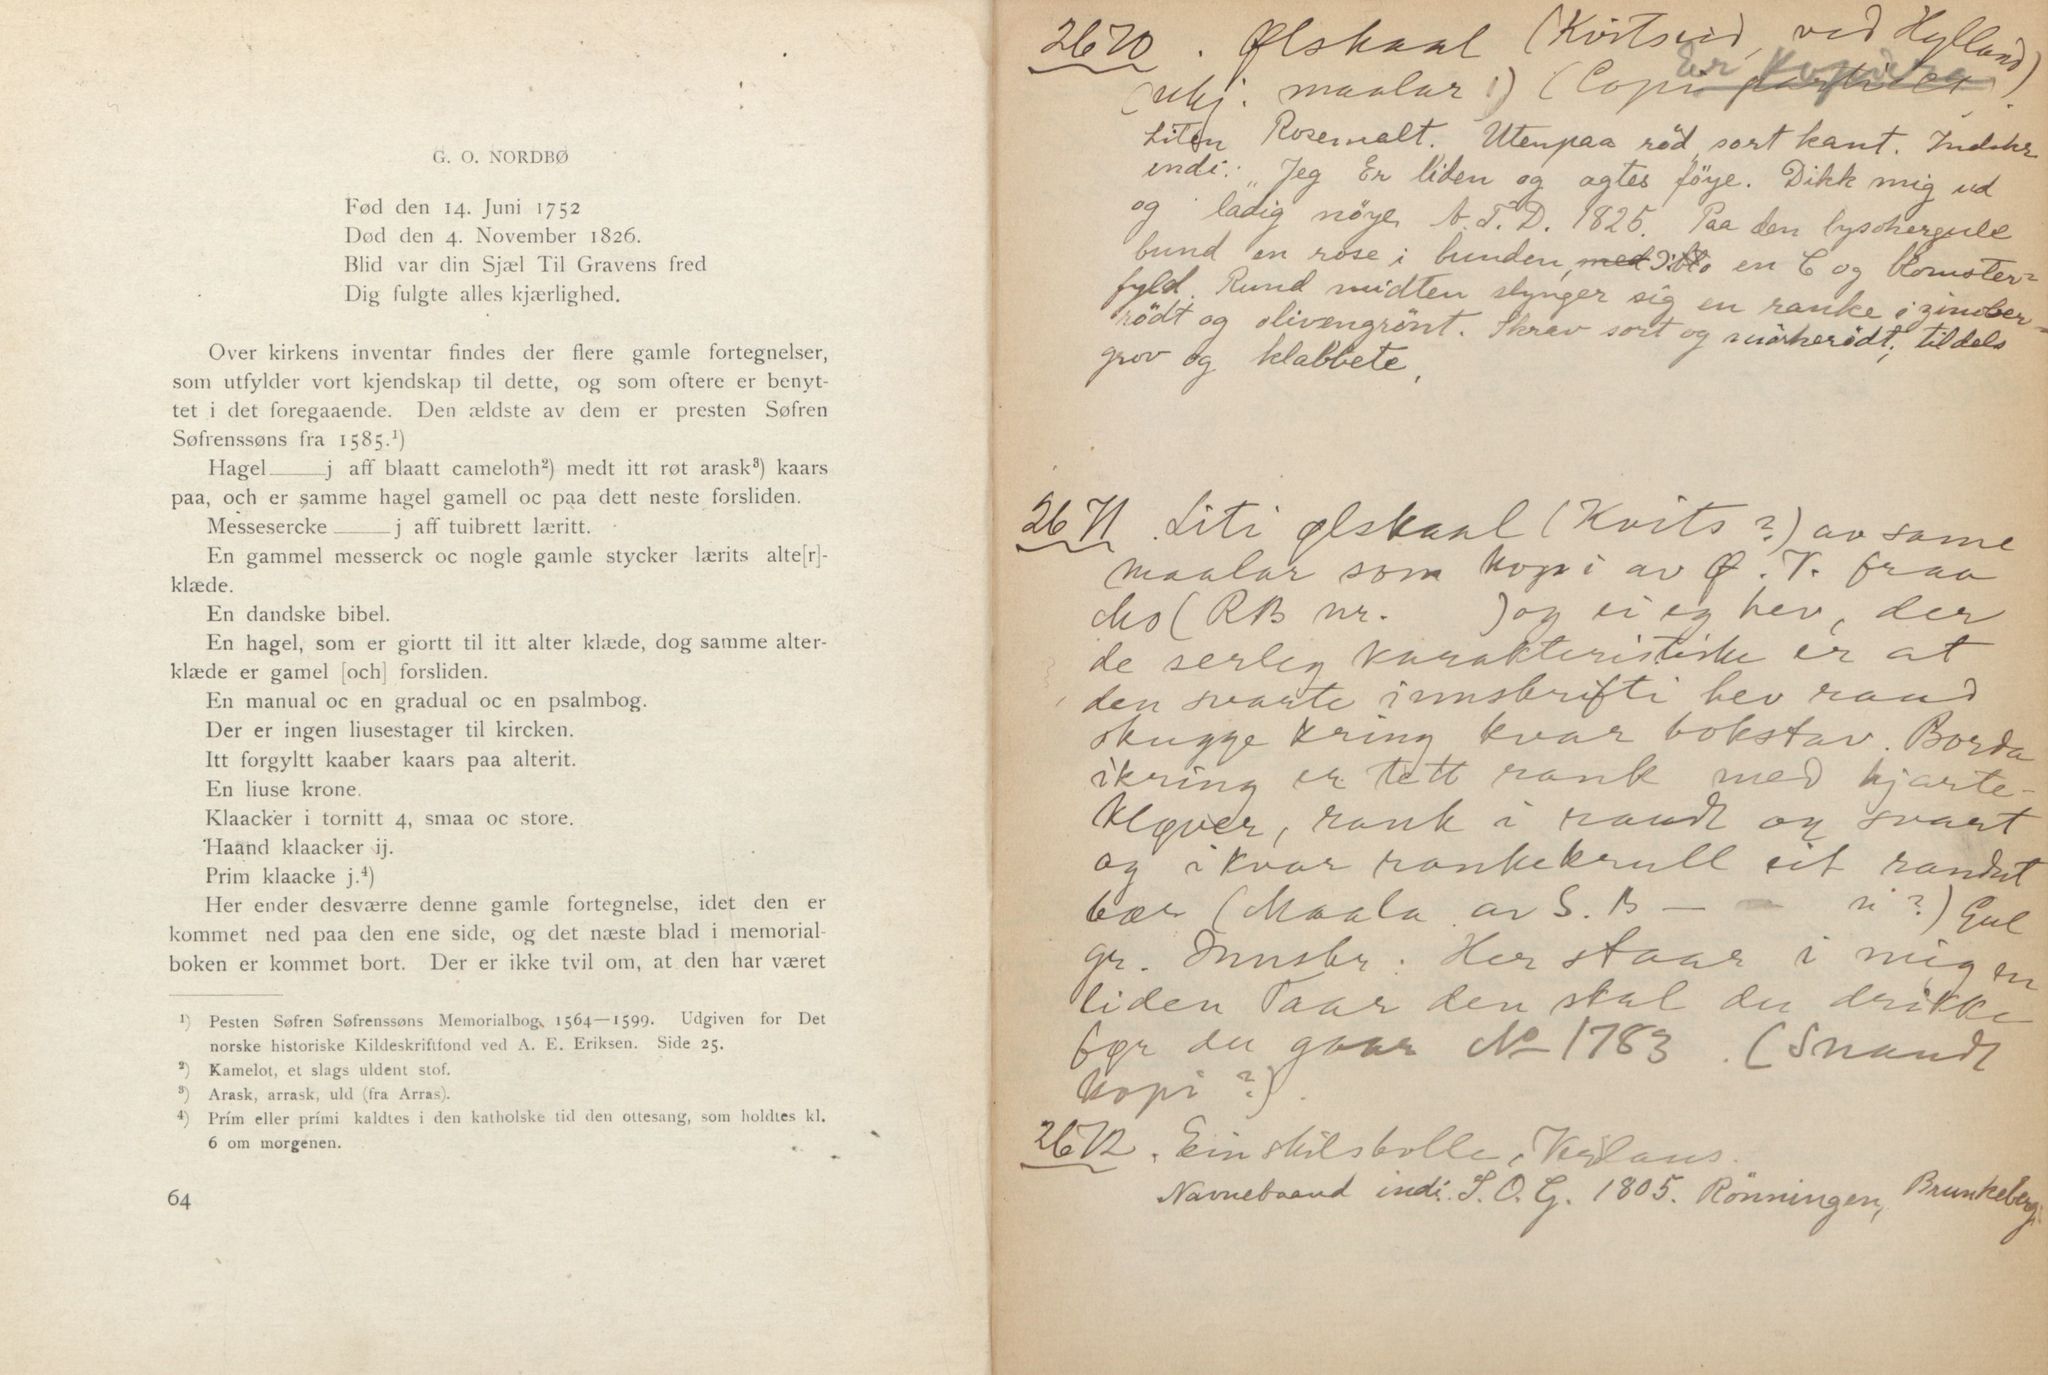 G. O. NORDBØ
Fød den 14. Juni 1752
Død den 4. November 1826.
Blid var din Sjæl Til Gravens fred
Dig fulgte alles kjærlighed.
Over kirkens inventar findes der flere gamle fortegnelser,
som utfylder vort kjendskap til dette, og som oftere er benyt-
tet i det foregaaende. Den ældste av dem er presten Søfren
Søfrenssøns fra 1585.¹)
Hagel ___ j aff blaatt cameloth²) medt itt røt arask³) kaars
paa, och er samme hagel gamell oc paa dett neste forsliden.
Messesercke ___ j aff tuibrett læritt.
En gammel messerck oc nogle gamle stycker lærits alte[r]-
klæde.
En dandske bibel.
En hagel, som er giortt til itt alter klæde, dog samme alter-
klæde er gamel [och] forsliden.
En manual oc en gradual oc en psalmbog.
Der er ingen liusestager til kircken.
Itt forgyltt kaaber kaars paa alterit.
En liuse krone.
Klaacker i tornitt 4, smaa oc store.
Haand klaacker ij.
Prim klaacke j.⁴)
Her ender desværre denne gamle fortegnelse, idet den er
kommet ned paa den ene side, og det næste blad i memorial-
boken er kommet bort. Der er ikke tvil om, at den har været
¹) Pesten Søfren Søfrenssøns Memorialbog 1564—1599. Udgiven for Det
norske historiske Kildeskriftfond ved A. E. Eriksen. Side 25.
²) Kamelot, et slags uldent stof.
³) Arask, arrask, uld (fra Arras).
⁴) Prím eller prími kaldtes i den katholske tid den ottesang, som holdtes kl.
6 om morgenen.
64
2670. Ølskaal (Kvitseid, ved Hylland)
(ukj. maalar !) (Copi Er kopiera).
Liten Rosemalt. Utenpaa rød, sort kant. Indskr.
indi: „Jeg Er liden og agtes föye. Dikk mig ud
og ladig nöye A.T.D. 1825. Paa den lysokergule
bund en rose i bunden, en C og blomster-
fyld. Rund midten slynger sig en ranke i zinober-
rödt og olivengrönt. Skrav sort og mörkerödt, tildels
grov og klabbete,
2671. Liti ølskaal (Kvits?) av same
maalar som kopi av Ø. K. fraa
Mo (RB nr. ) og ei eg hev, der
de serleg karakteristiske er at
den svarte innskrifti hev raud
skugge kring kvar bokstav. Borda
ikring er tett rank med hjarte-
kløver, rank i raudt og svart
og i kvar rankekrull eit raudt
bær (Maala av S. B — n?) Gul
gr. Innskr. Her staar i mig en
liden Taar den skal du drikke
før du gaar No 1783. (Snaudt
kopi?).
2672. Ein skilsbolle,
Navnebaand indi S. O. G. 1805. Rönningen, Brunkeberg.